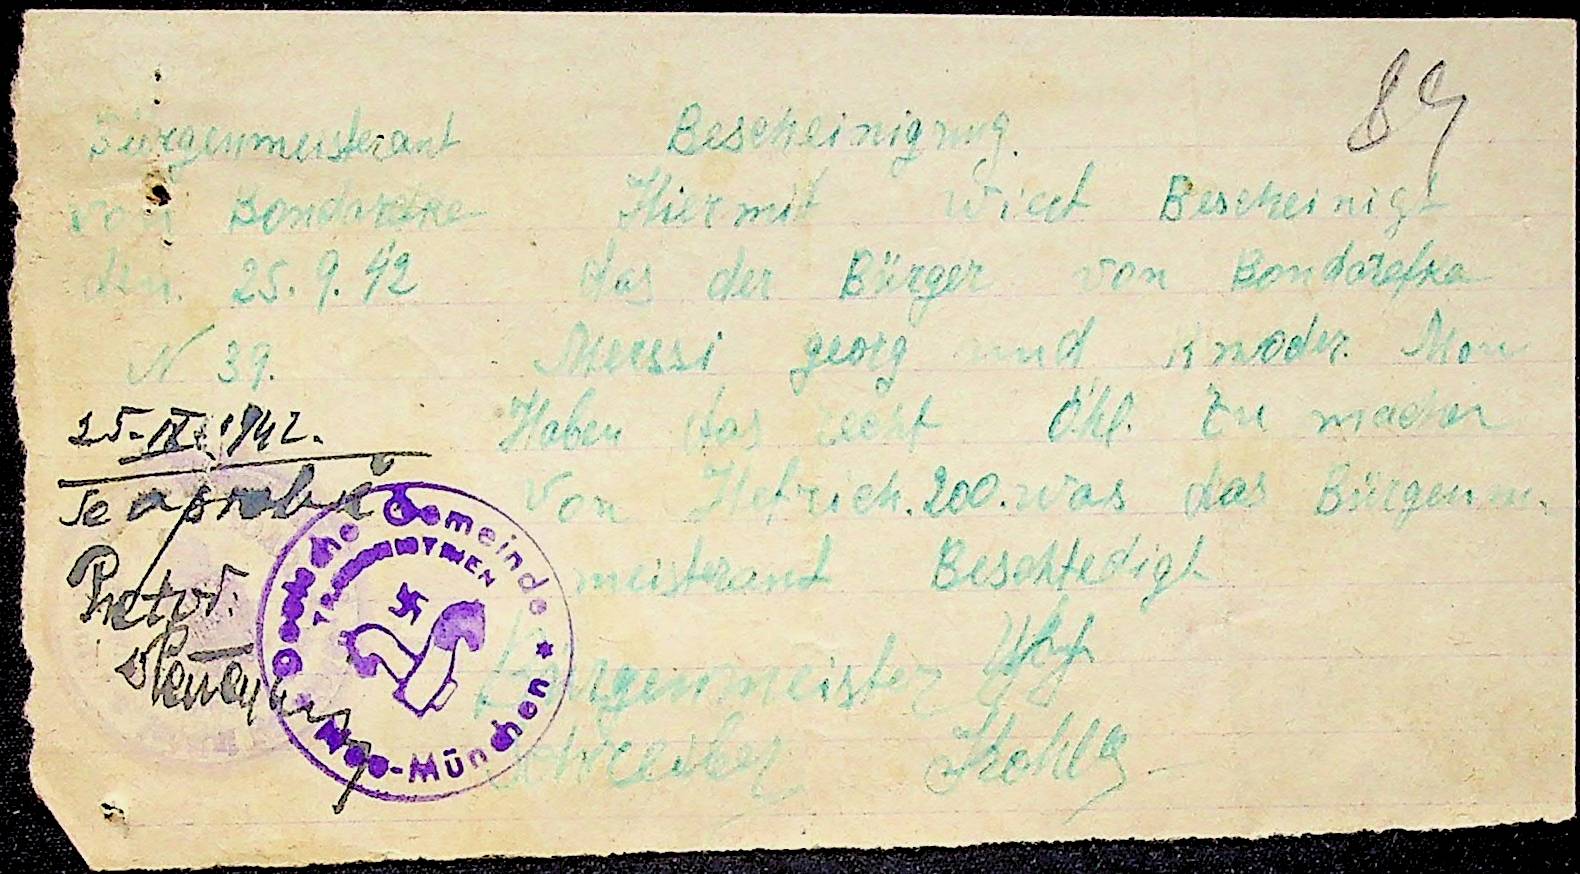 89
Bürgenmeisterant
von Bondarefke
den. 25.9.42
N 39.
Bescheinigung.
Hiermit wird Bescheinigt
das der Bürger von Bondarefka
Merssi georg und Knoder
Haben das recht Öhl. Zu machen
Von 200. was das Bürgenm.
meisterant
Bürgenmeister
Schreiber
25-IX-1942.
Se aprobă
Pretor.
Deutsche Gemeinde
TRANSNISTRIEN
Neo-München